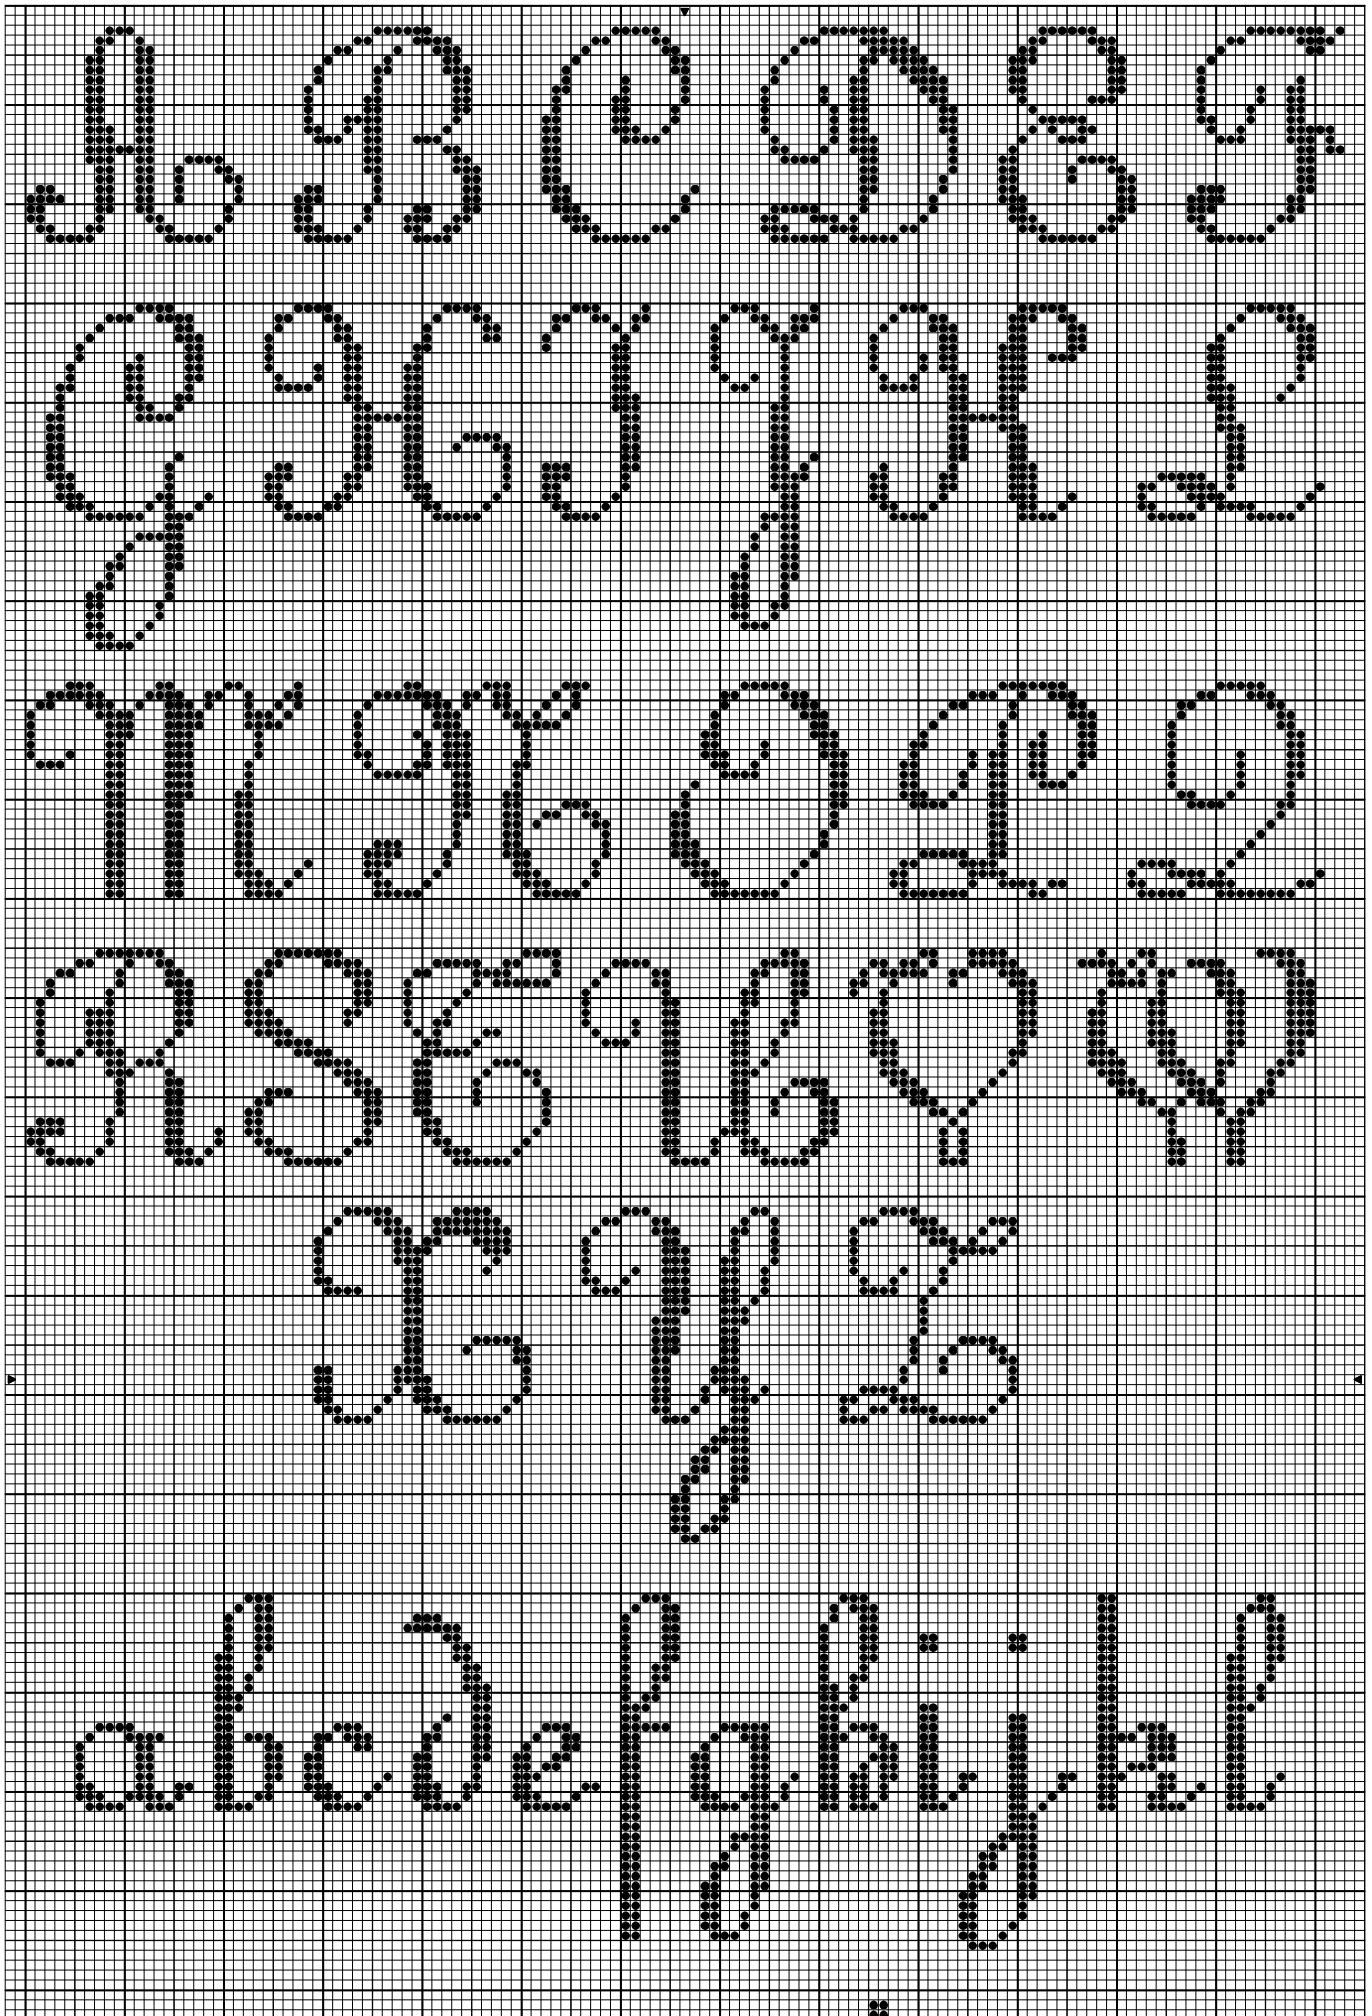 A B C D E F
G H I J K L
M N O P Q
R S T U V W
X Y Z
a b c d e f g h i j k l